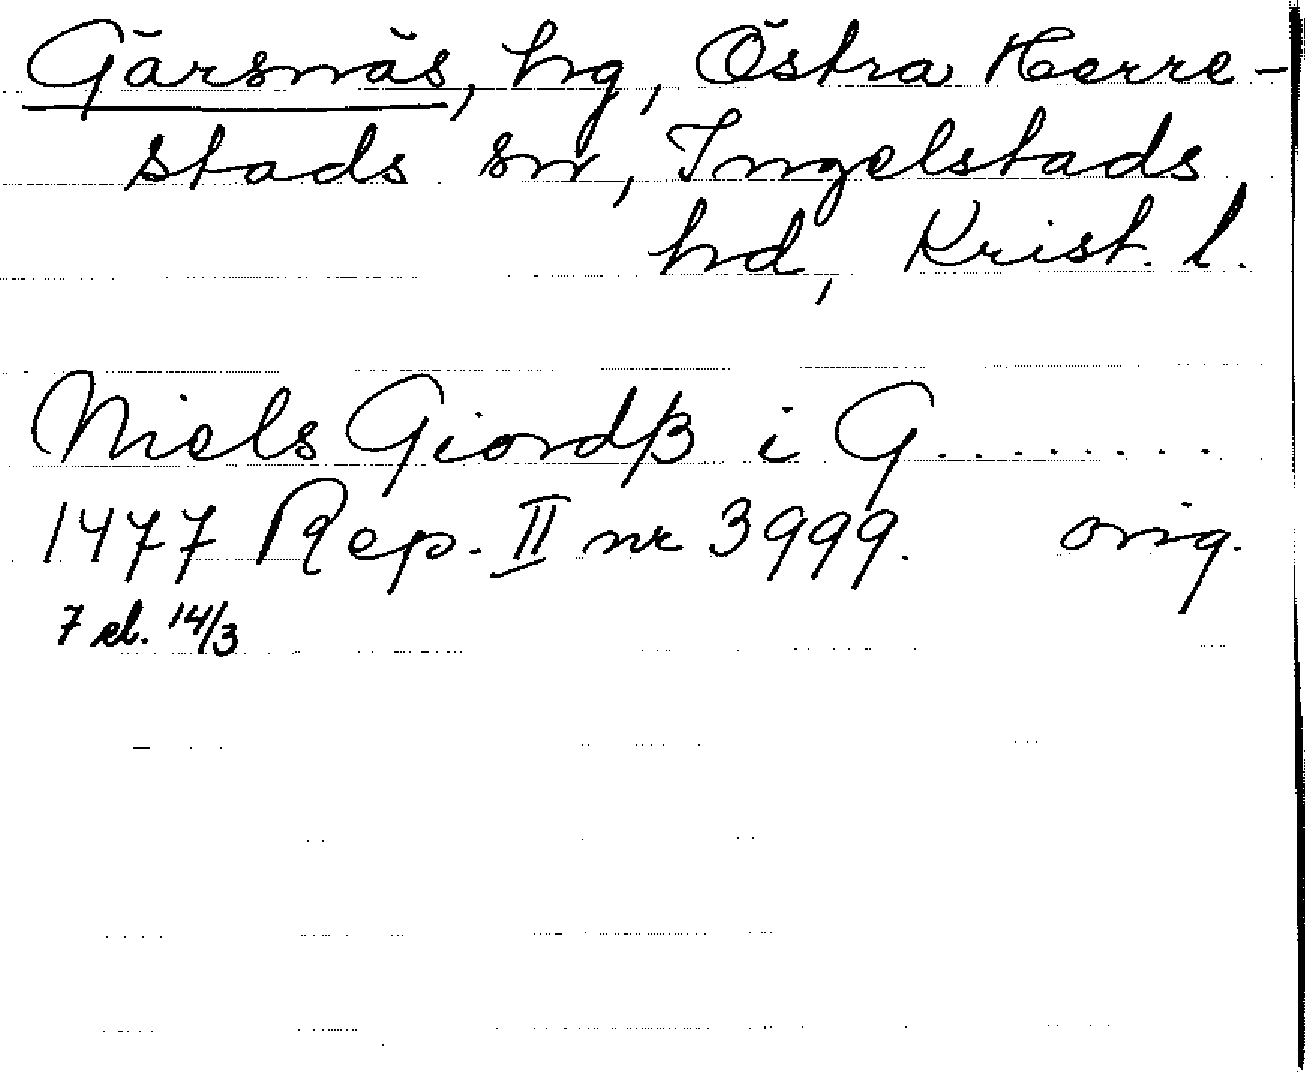 Gärsnäs, hg, Östra Herre-
stads sn, Ingelstads
hd, Krist. l.
Niels Giordß i G........
1477 Rep. II nr 3999. orig.
7 el. 14/3